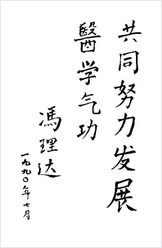 共同努力发展
醫学气功
馮理达
一九九〇年七月